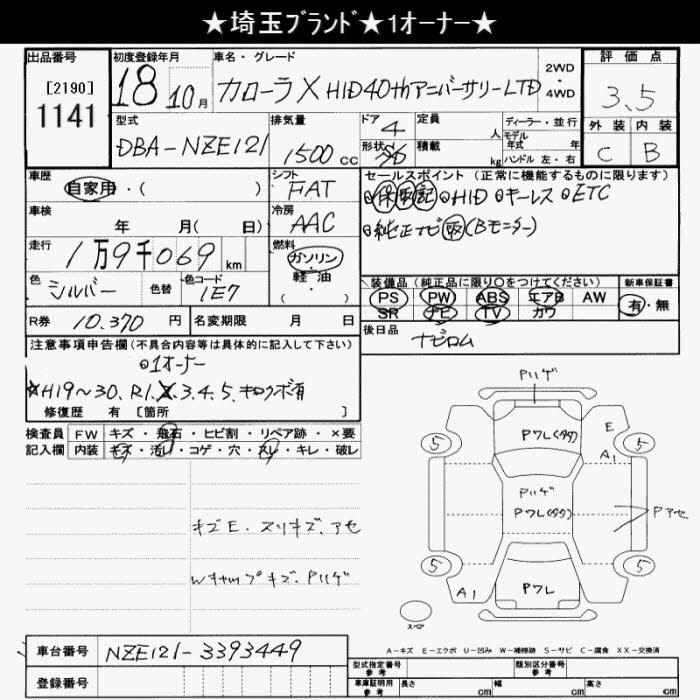 ★埼玉ブランド★1オーナー★
出品番号 [2190] 1141
初度登録年月 18 10月
車名・グレード カローラX HID40thアニバーサリーLTD
2WD・4WD
評価点 3.5
外装 C 内装 B
型式 DBA-NZE121
排気量 1500cc
ドア 4 形状
定員 人
積載 kg
ディーラー・並行
モデル年式 年
ハンドル 左・右
車歴 自家用・( )
シフト FAT
車検 年 月( 日)
冷房 AAC
走行 1万9千069km
燃料 ガソリン・軽油・( )
色 シルバー 色替 色コード 1E7
R券 10.370円 名変期限 月 日
セールスポイント(正常に機能するものに限ります)
保 取 記 HID キーレス ETC
純正ナビ 取(Bモニター)
装備品(純正品に限り〇をつけてください) 新車保証書
PS PW ABS エアB AW 有・無
SR ナビ TV カワ
後日品 ナビロム
注意事項申告欄(不具合内容等は具体的に記入して下さい)
1オーナー
☆H19~30、R1.2.3.4.5.キロクボ有
修復歴 有 [箇所 ]
検査員記入欄
FW キズ・飛石・ヒビ割・リペア跡・×要
内装 キズ・汚レ・コゲ・穴・スレ・キレ・破レ
キズE.スリキズ、アセ
Wキャップキズ、Pハゲ
Pハゲ
PワL(タタ)
5 E 5
A1
Pハゲ
PワL(タタ)
Pアセ
5 PワL 5
A1
スペア
A-キズ E-エクボ U-凹み W-補修跡 S-サビ C-腐食 XX-交換済
車台番号 NZE121-3393449
登録番号
型式指定番号 参考 類別区分番号 参考
車庫証明用 参考 長さ cm 幅 cm 高さ cm